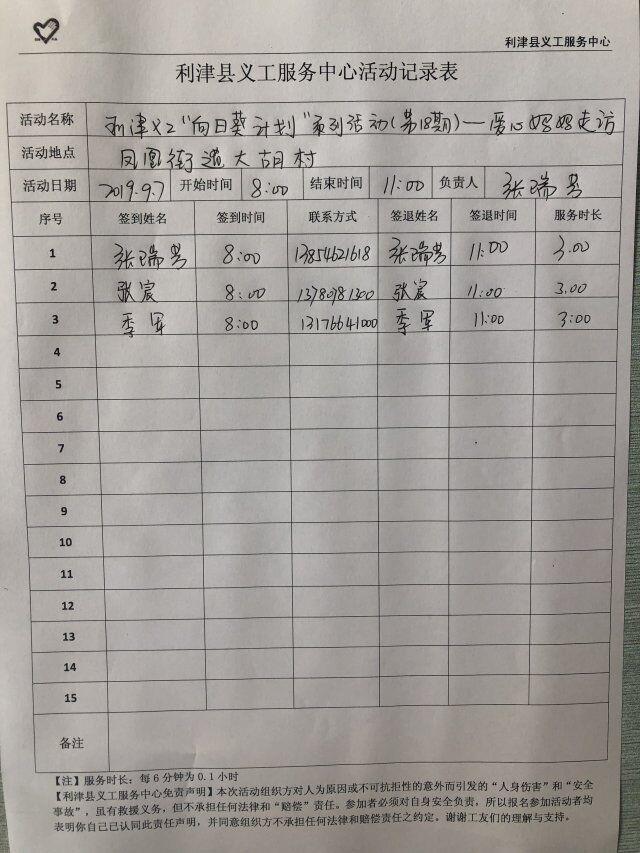 利津县义工服务中心
利津县义工服务中心活动记录表
活动名称 利津义工"向日葵计划"系列活动(第18期)—爱心妈妈走访
活动地点 凤凰街道大胡村
活动日期 2019.9.7 开始时间 8:00 结束时间 11:00 负责人 张瑞芳
序号 签到姓名 签到时间 联系方式 签退姓名 签退时间 服务时长
1 张瑞芳 8:00 13854621618 张瑞芳 11:00 3.00
2 张宸 8:00 张宸 11:00 3.00
3 季军 8:00 13176641000 季军 11:00 3:00
4
5
6
7
8
9
10
11
12
13
14
15
备注
【注】服务时长：每6分钟为0.1小时
【利津县义工服务中心免责声明】本次活动组织方对人为原因或不可抗拒性的意外而引发的“人身伤害”和“安全
事故”，虽有救援义务，但不承担任何法律和“赔偿”责任。参加者必须对自身安全负责，所以报名参加活动者均
表明你自己已认同此责任声明，并同意组织方不承担任何法律和赔偿责任之约定。谢谢工友们的理解与支持。